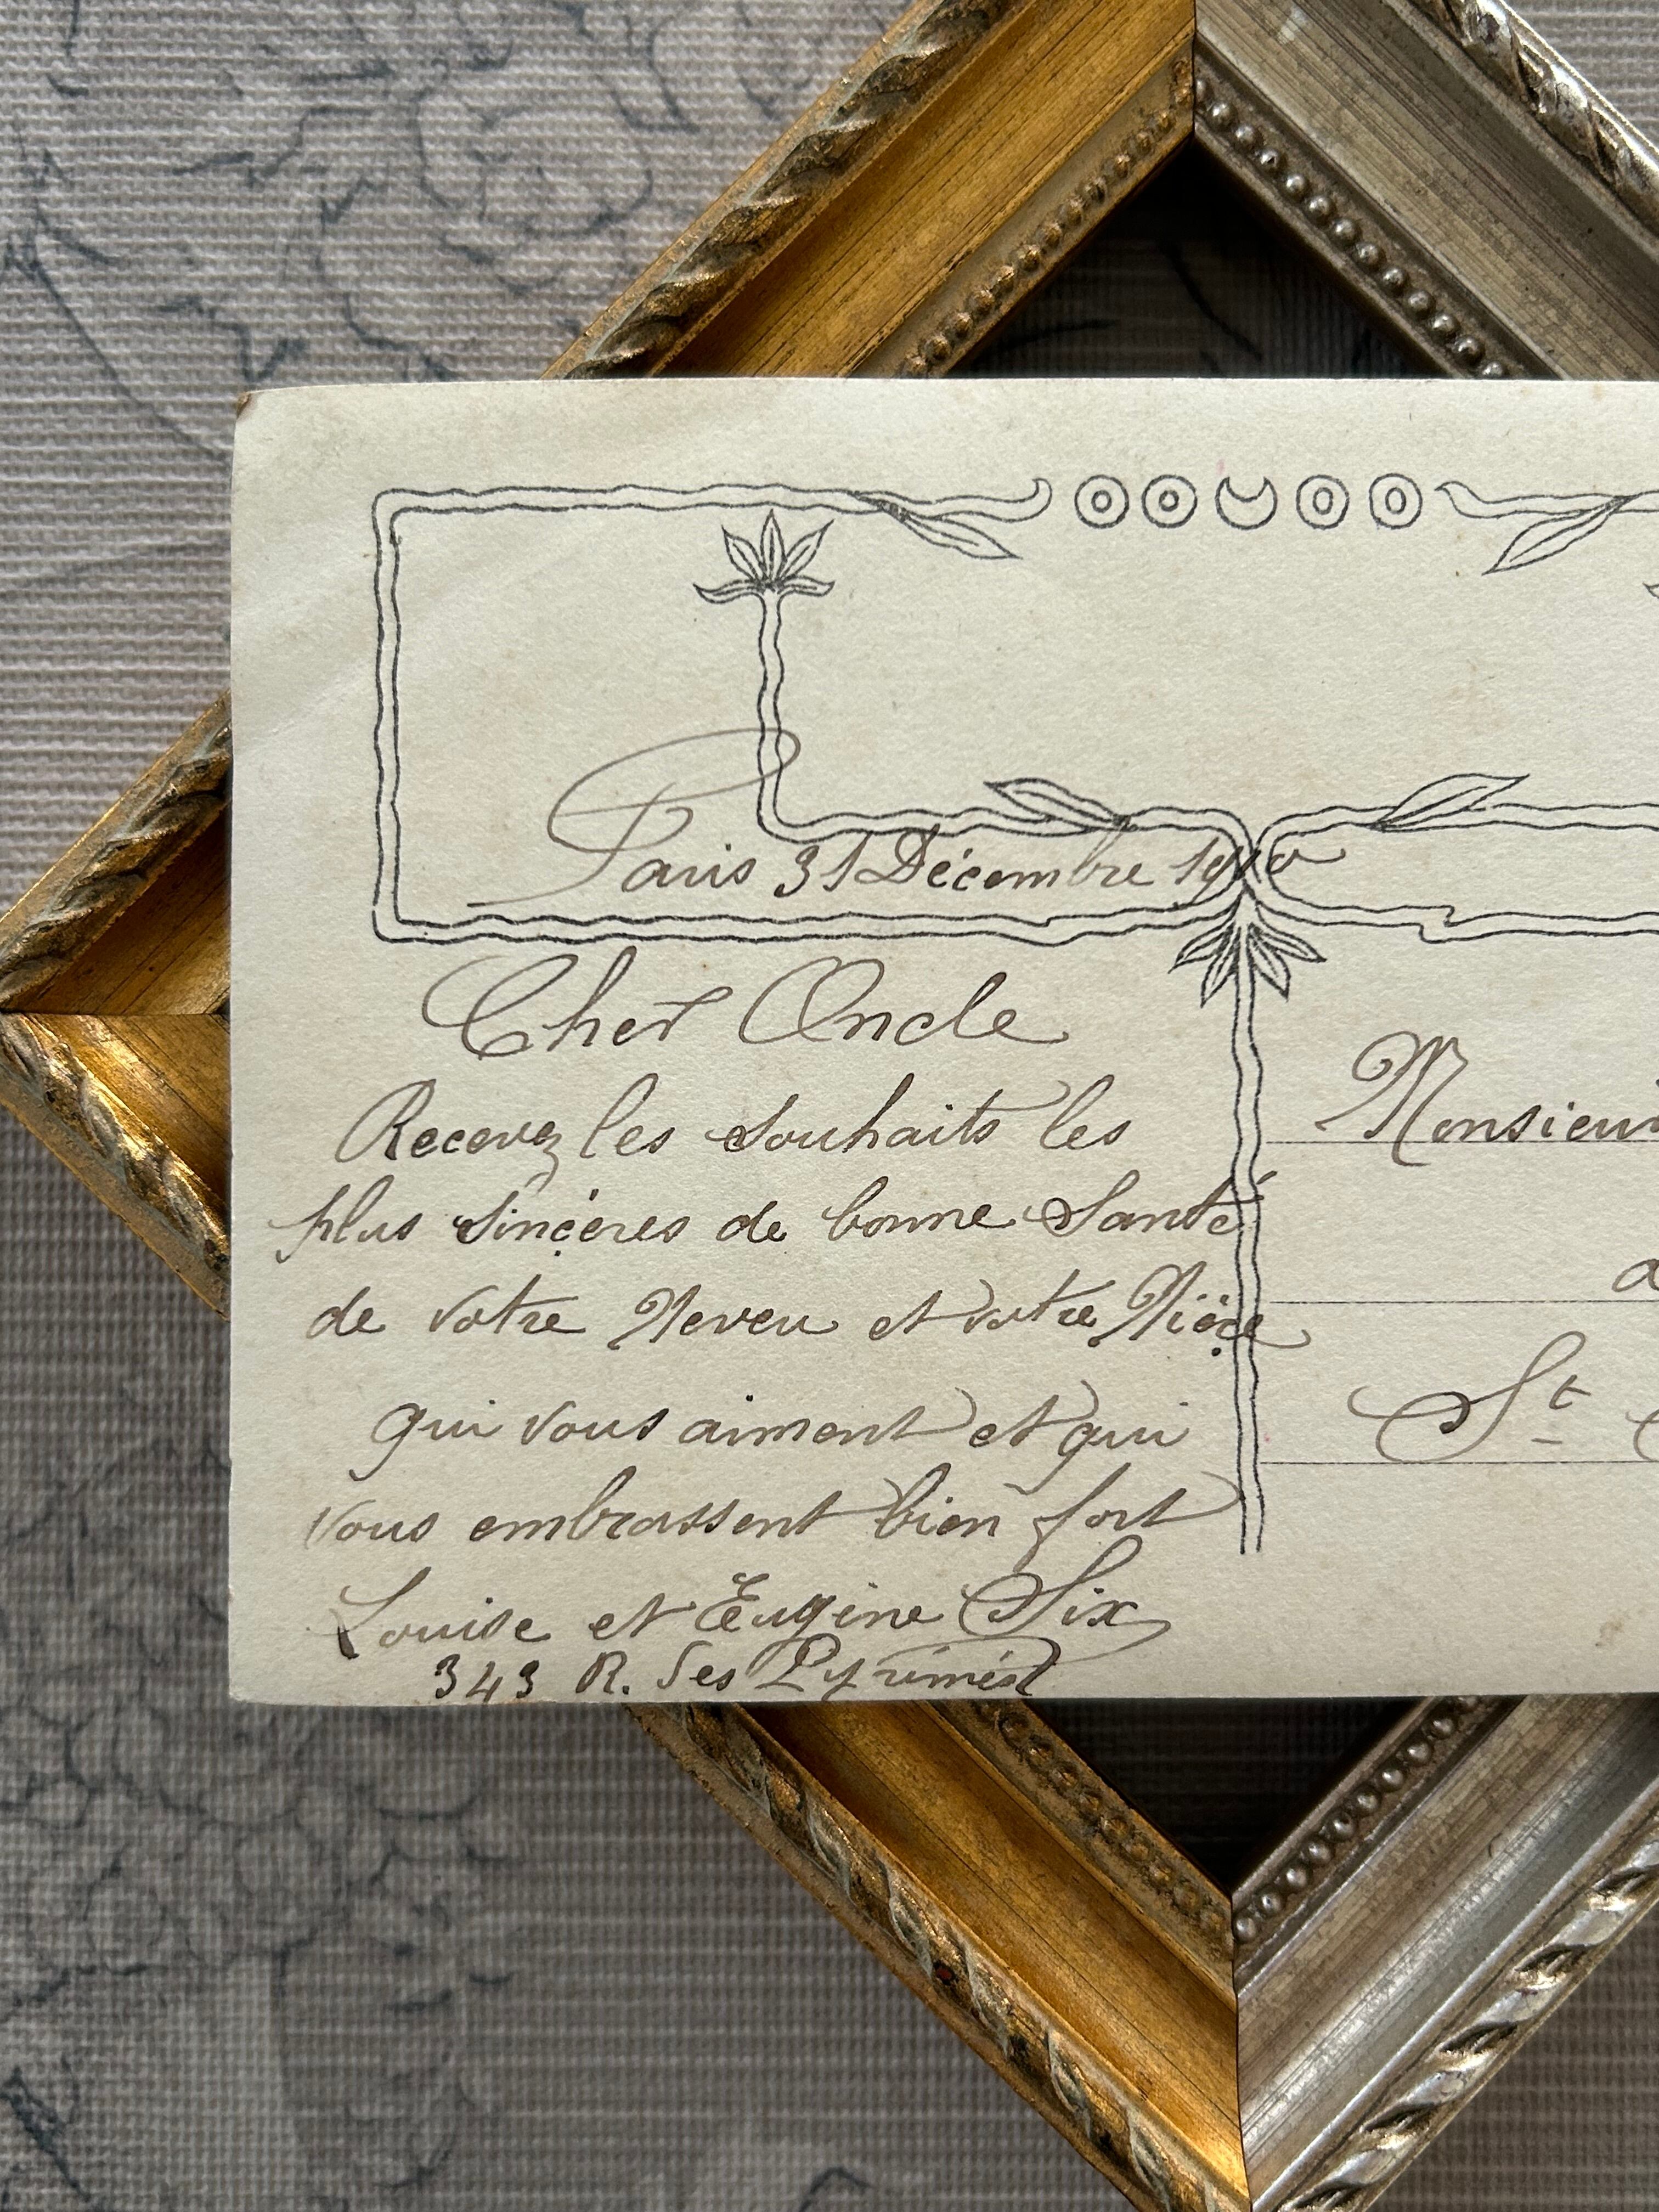 Paris 31 Décembre 1910
Cher Oncle
Recevez les souhaits les
plus sincères de bonne Santé
de votre Neveu et votre Nièce
qui vous aiment et qui
vous embrassent bien fort
Louise et Eugène Six
343 R. des
Monsieur
a
St